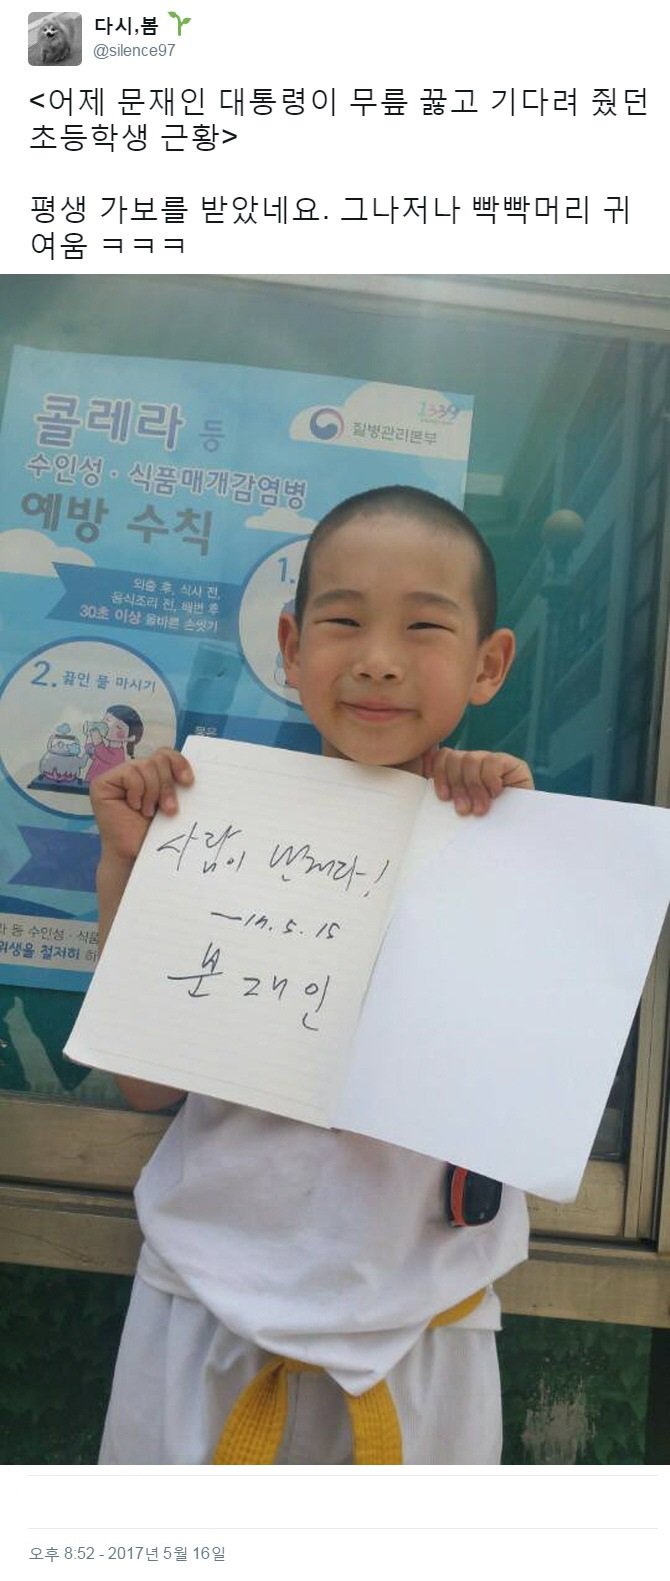 다시,봄
@silence97
<어제 문재인 대통령이 무릎 꿇고 기다려 줬던
초등학생 근황>
평생 가보를 받았네요. 그나저나 빡빡머리 귀
여움 ㅋㅋㅋ
콜레라 등
1339
질병관리본부
수인성·식품매개감염병
예방 수칙
1.
외출 후, 식사 전,
음식조리 전, 배변 후
30초 이상 올바른 손씻기
2. 끓인 물 마시기
물은
라 등 수인성·식품
위생을 철저히 하
사람이 먼저다!
17. 5. 15
문재인
오후 8:52 - 2017년 5월 16일